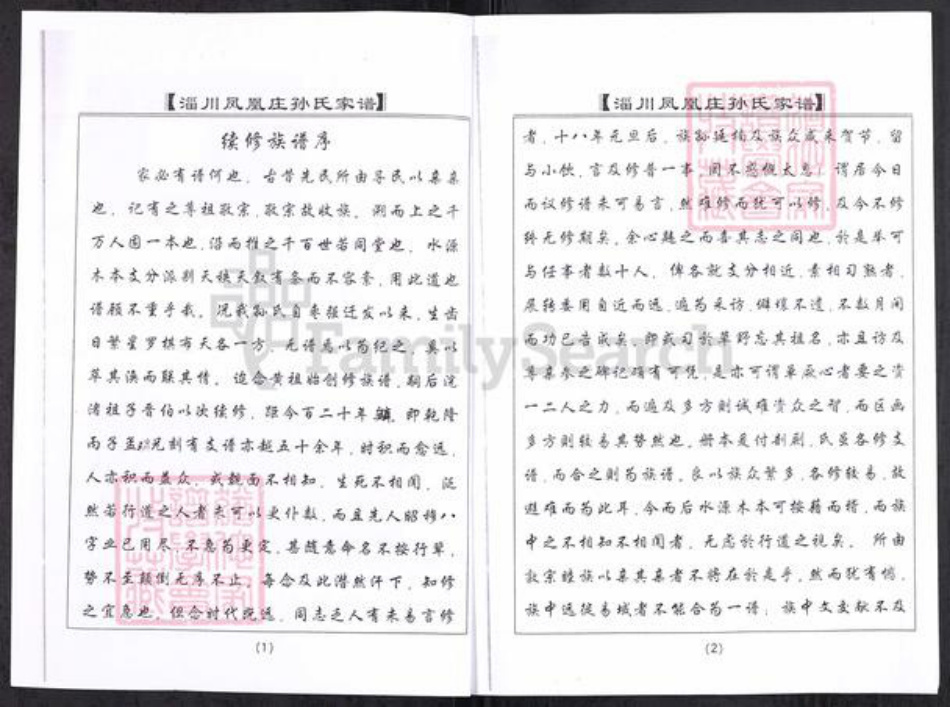 【淄川凤凰庄孙氏家谱】
续修族谱序
家必有谱何也，古昔先民所由寻民以亲亲
也，记有之尊祖敬宗，敬宗故收族。溯而上之千
万人固一本也，沿而推之千百世若同堂也，水源
木本支分派别天族天叙有条而不容紊，用此道也
谱顾不重乎哉。况我孙氏自枣强迁发以来，生齿
日繁星罗棋布天各一方，无谱焉以为纪之，奚以
萃其涣而联其情。迨合黄祖始创修族谱，嗣后浣
渚祖子晋伯以次续修，距今百二十年，即乾隆
丙子孟兄刻有支谱亦越五十余年，时积而愈远，
人亦积而益众，或觌面不相知，生死不相闻，泛
然若行道之人者未可以更仆数，而且先人昭穆八
字业已用尽，不急为更定，甚随意命名不按行辈，
势不至颠倒无序不止，每念及此潸然汗下，知修
之宜急也，但念时代既远，同志乏人有未易言修
(1)
【淄川凤凰庄孙氏家谱】
者，十八年元旦后，族孙廷柏及族众咸来贺节，留
与小饮，言及修普一事，罔不感慨太息，谓居今日
而议修谱未可易言，然难修而犹可以修，及今不修
终无修期矣，余心韪之而喜其志之同也，於是举可
与任事者数十人，俾各就支分相近，素相习熟者，
展转委用自近而远，遍为采访，继续不遗，不数月间
而功已告成矣，即或习於草野忘其祖名，亦且访及
尊亲参之碑记确有可凭，是亦可谓单厥心者要之资
一二人之力，而遍及多方则诚难资众之智，而区画
多方则较易其势然也，册本爰付剞劂，氏虽各修支
谱，而合之则为族谱，良以族众繁多，各修较易，故
避难而为此耳，今而后水源木本可按籍而稽，而族
中之不相知不相闻者，无虑於行道之视矣。 所由
敦宗睦族以亲其亲者不将在於是乎，然而犹有憾，
族中远徙易域者不能合为一谱；族中文交献不及
(2)
FamilySearch